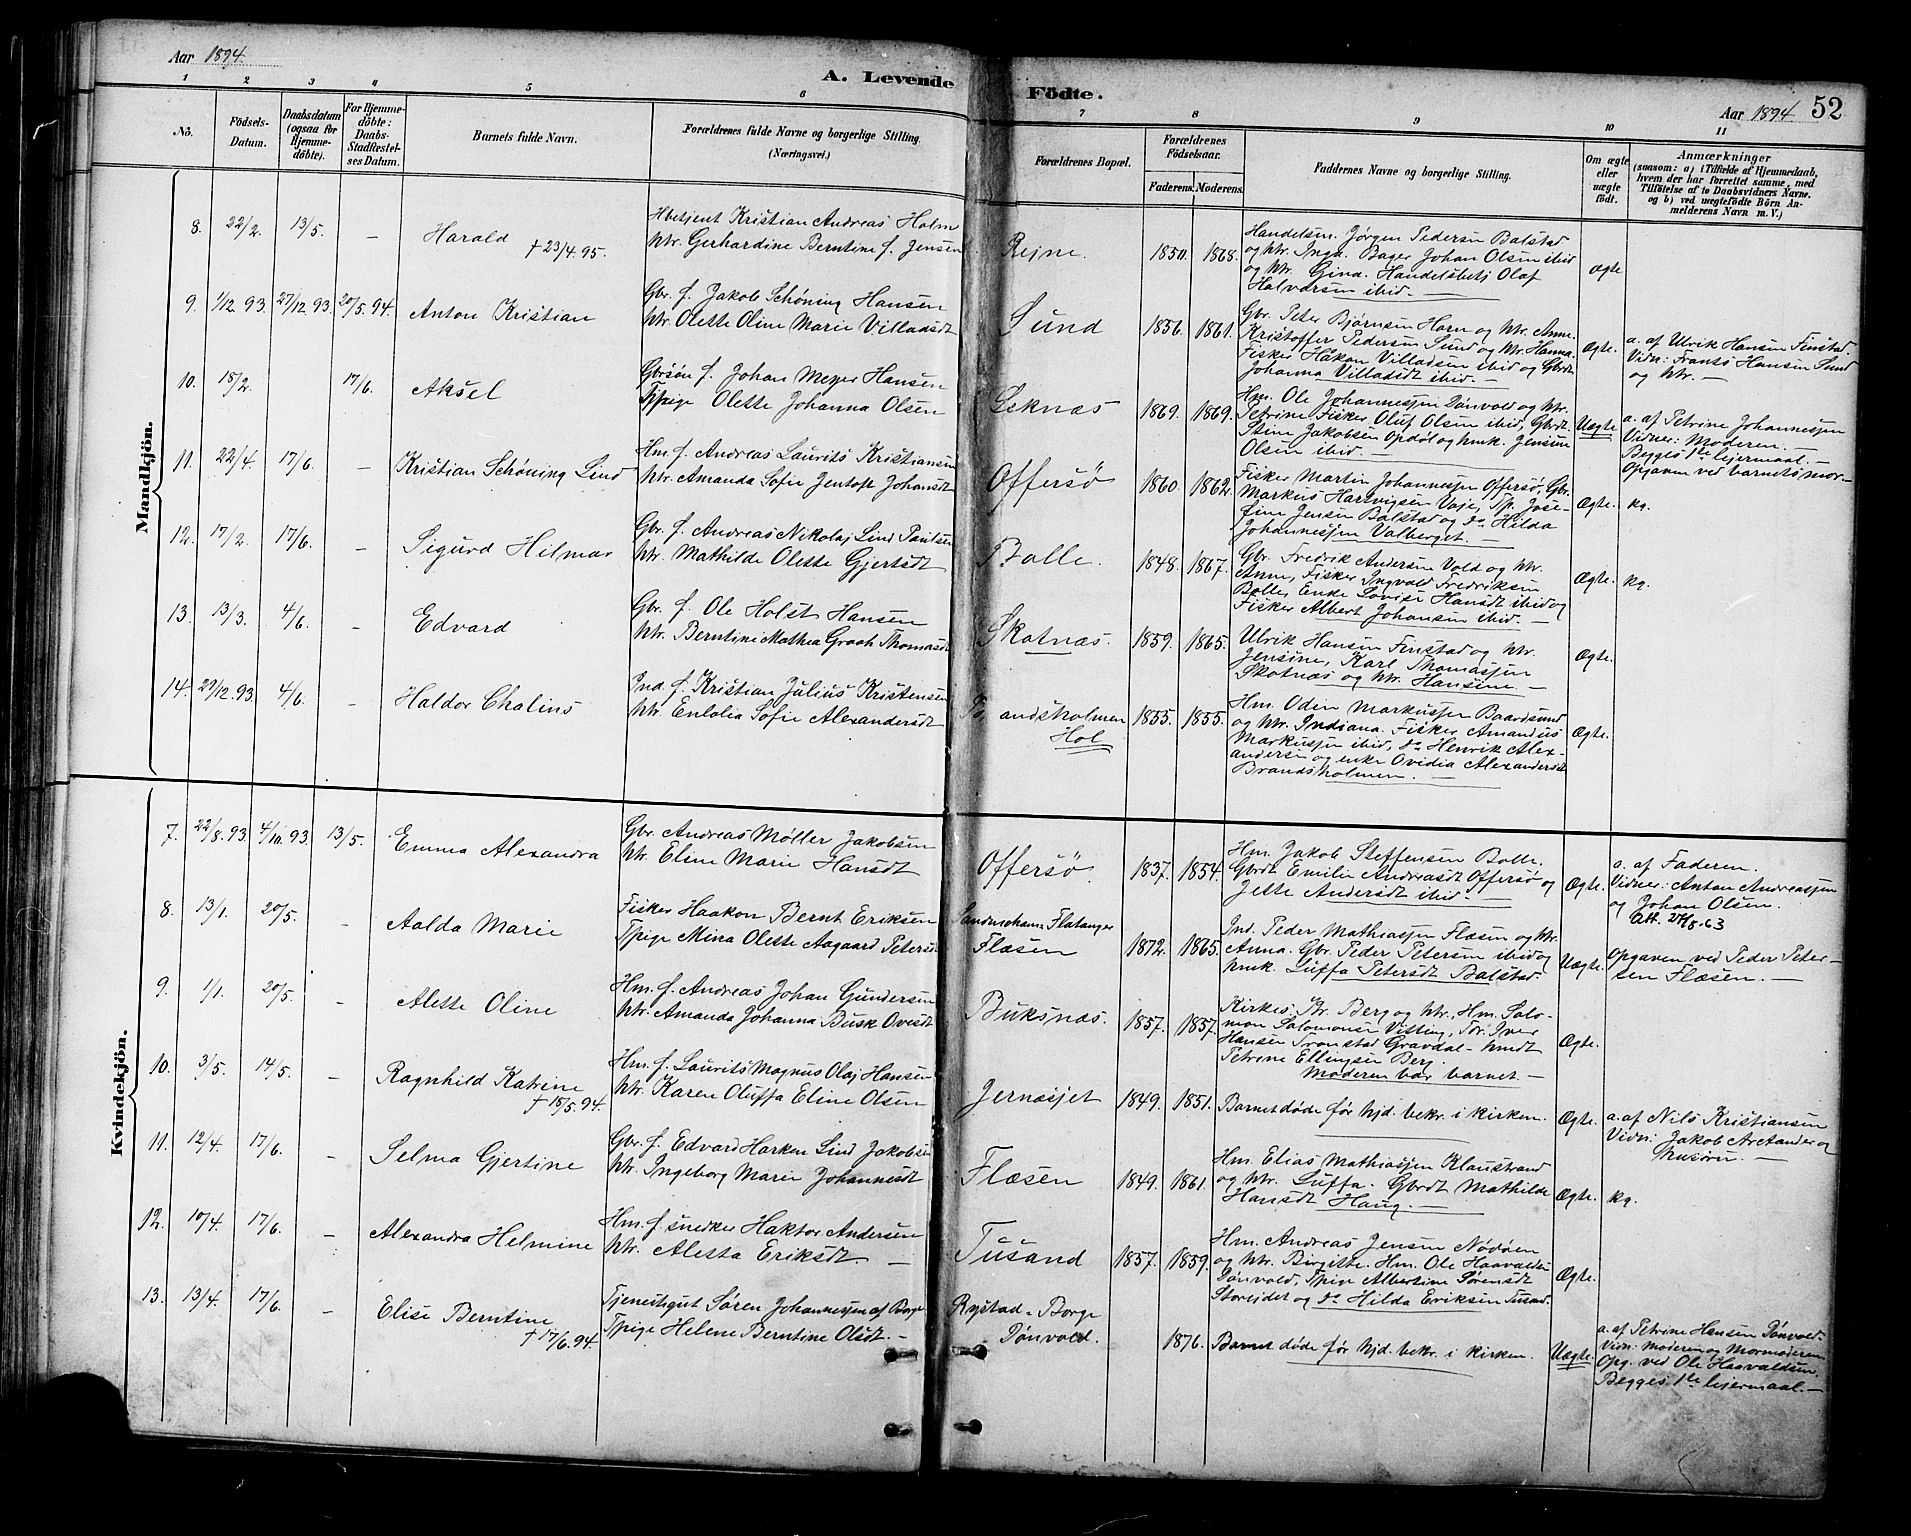 Aar 1894.
A. Levende Födte.
Aar 1894 52
1 2 3 4 5 6 7 8 9 10 11
No.
Födsels-Datum.
Daabsdatum (ogsaa for Hjemmedöbte).
For Hjemmedöbte: Daabs-Stadfæstelses Datum.
Barnets fulde Navn.
Forældrenes fulde Navne og borgerlige Stilling. (Næringsvei.)
Forældrenes Bopæl.
Forældrenes Födselsaar.
Faderens. Moderens.
Faddernes Navne og borgerlige Stilling.
Om ægte eller uægte födt.
Anmærkninger
(saasom: a) i Tilfælde af Hjemmedaab,
hvem der har forrettet samme, med
Tilföielse af to Daabsvidners Navne.
og b) ved uægtefödte Börn Anmelderens Navn m. V.)
Mandkjön.
8. 22/2. 13/5. – Harald † 23/4. 95.
Hbetjent Kristian Andreas Holm
htr. Gerhardine Berntine f. Jensen
Rejne. 1850. 1868.
Handelsm. Jørgen Pedersen Balstad
og htr. Inga. Bager Johan Olsen ibid
og htr. Gina. Handelsbetj Olaf
Halvorsen ibid. —
Ægte
9. 1/12 93. 27/12 93. 20/5. 94. Anton Kristian
Gbr. f. Jakob Schøning Hansen
htr. Olette Oline Marie Villadsdt
Sund 1856. 1861.
Gbr. Peter Bjørnsen Horn og htr. Anne.
Kristoffer Pedersen Sund og htr. Hanna.
Fisker Håkon Villadsen ibid og Gbrdt
Johanna Villadsdt ibid. —
Ægte.
a. af Ulrik Hansen Finstad.
Vidn: Frants Hansen Sund
og htr. —
10. 18/2. 17/6. Aksel
Gbrsøn f. Johan Meyer Hansen
Tpige Olette Johanna Olsen
Leknæs 1869. 1869.
Hm. Ole Johannessen Dønvold og htr.
Petrine Fisker Oluf Olsen ibid, Gbrdt.
Stine Jakobsen Opdøl og hmk. Jensine
Olsen ibid. —
Uægte
a. af Petrine Johannessen
Vidner: Moderen. —
Begges 1ste lejermaal. —
Opgaven ved barnets mor —
11. 22/4. 17/6. – Kristian Schøning Lind
Hm. f. Andreas Laurits Kristiansen
htr. Amanda Sofie Jentoft Johansdt
Offersø 1860. 1862.
Fisker Martin Johannessen Offersø, Gbr.
Markus Hartvigsen Vaje, Tp. Jose-
fine Jensen Balstad og do Hilda
Johannessen Valberget. —
Ægte. kg.
12. 17/2. 17/6. – Sigurd Hilmar
Gbr. f. Andreas Nikolaj Lind Paulsen
htr. Mathilde Olette Gjertsdt
Bolle. 1848. 1867.
Gbr. Fredrik Andersen Vold og htr.
Anne, Fisker Ingvald Fredriksen
Bolle, Enke Lovise Hansdt ibid og
Fisker Albert Johansen ibid. —
Ægte. kg.
13. 13/3. 4/6. – Edvard
Gbr. f. Ole Holst Hansen
htr. Berntine Mathea Groth Thomasdt
Skotnæs. 1859. 1865.
Ulrik Hansen Finstad og htr.
Jensine, Karl Thomassen
Skotnæs og htr. Hansine. —
Ægte.
14. 29/12. 93. 4/6. – Haldor Chalius
Ind. f. Kristian Julius Kristensen
htr. Enlolia Sofie Alexandersdt
andsholmen Hol 1855. 1855.
Hm. Oden Markussen Baardsund
og htr. Indiana. Fisker Amandus
Markussen ibid, do Henrik Alex-
andersen og enke Ovidia Alexandersdt
Brandsholmen. —
Ægte.
Kvindekjön.
7. 22/8. 93. 4/10. 93. 13/5. Emma Alexandra
Gbr. Andreas Møller Jakobsen
htr. Eline Marie Hansdt
Offersø 1837. 1854.
Hm. Jakob Steffensen Bolle.
Gbrdt Emilie Andreasdt Offersø og
Jette Andersdt ibid. —
Ægte.
a. af Faderen.
Vidner: Anton Andreassen
og Johan Olsen.
Att. 27/8. 63
8. 13/1. 20/5. – Aalda Marie
Fisker Haakon Bernt Eriksen
Tpige Mina Olette Aagaard Petersdt
Flatanger
Flæsen 1872. 1865.
Ind. Peder Mathiassen Flæsen og htr.
Anna. Gbr. Peder Petersen ibid og
hmk. Luffa Petersdt Balstad.
Uægte.
Opgaven ved Peder Peter-
sen Flæsen. —
9. 1/1. 20/5. – Alette Oline
Hm. f. Andreas Johan Gundersen
htr. Amanda Johanna Busk Ovesdt
Buksnæs. 1857. 1857.
Kirkes. Kr. Berg og htr., Hm. Salo-
mon Salomonsen Visting, Tor. Iver
Hansen Tronstad Gravdal – hmdt
Petrine Ellingsen Berg.
Moderen bar barnet. —
Ægte.
10. 3/5. 14/5. – Ragnhild Katrine † 18/5. 94.
Hm. f. Laurits Magnus Olaj Hansen
htr. Karen Oluffa Eline Olsen
Jernæsjet 1849. 1851.
Barnet døde før hjd. bekr. i kirken.
Ægte.
a. af Nils Kristiansen
Vidn: Jakob Arctander og
hustru. —
11. 12/4. 17/6. – Selma Gjertine
Gbr. f. Edvard Harken Lind Jakobsen
htr. Ingeborg Marie Johannesdt
Flæsen 1849. 1861.
Hm. Elias Mathiassen Klaustrand
og htr. Luffa. Gbrdt Mathilde
Hansdt Haug. —
Ægte. kg.
12. 10/4. 17/6. – Alexandra Helmine
Hm. f. snedker Haktor Andersen
htr. Alesta Eriksdt. —
Tusand 1857. 1859.
Hm. Andreas Jensen Nødøen
og htr. Birgitte. Hm. Ole Haavaldsen
Dønvold, Tpige Albertine Sørensdt
Storejdet og do Hilda Eriksen Tusand.
Ægte.
13. 13/4. 17/6. – Elise Berntine † 17/6. 94.
Tjenestegut Søren Johannessen af Borge
Tpige Helene Berntine Olsdt. —
Rystad - Borge
Dønvold. 1876.
Barnet døde før hjd. bekr. i kirken.
Uægte.
a. af Petrine Hansen Dønvold.
Vidn: moderen og Mormoderen.
Opg. ved Ole Haavaldsen.
Begges 1ste lejermaal. —